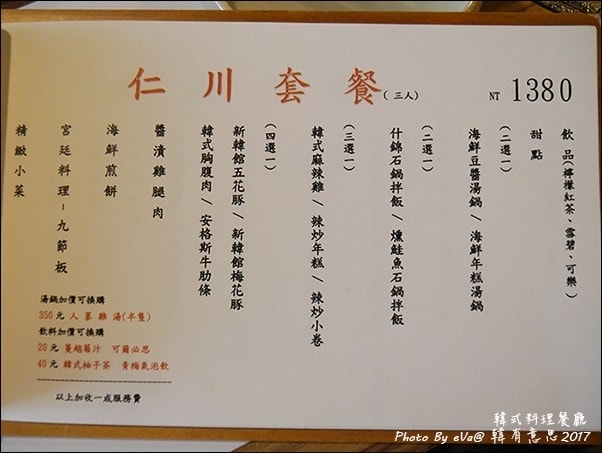 仁川套餐(三人)
NT 1380
飲品(檸檬紅茶、雪碧、可樂)
甜點
(二選一)
海鮮豆醬湯鍋 / 海鮮年糕湯鍋
(二選一)
什錦石鍋拌飯 / 燻鮭魚石鍋拌飯
(三選一)
韓式麻辣雞 / 辣炒年糕 / 辣炒小卷
(四選一)
新韓館五花豚 / 新韓館梅花豚
韓式胸腹肉 / 安格斯牛肋條
醬漬雞腿肉
海鮮煎餅
宮廷料理-九節板
精緻小菜
湯鍋加價可換購
350元 人蔘雞湯(半隻)
飲料加價可換購
20元 蔓越莓汁 可爾必思
40元 韓式柚子茶 青梅氣泡飲
以上加收一成服務費
韓式料理餐廳
Photo By eVa@ 韓有意思 2017